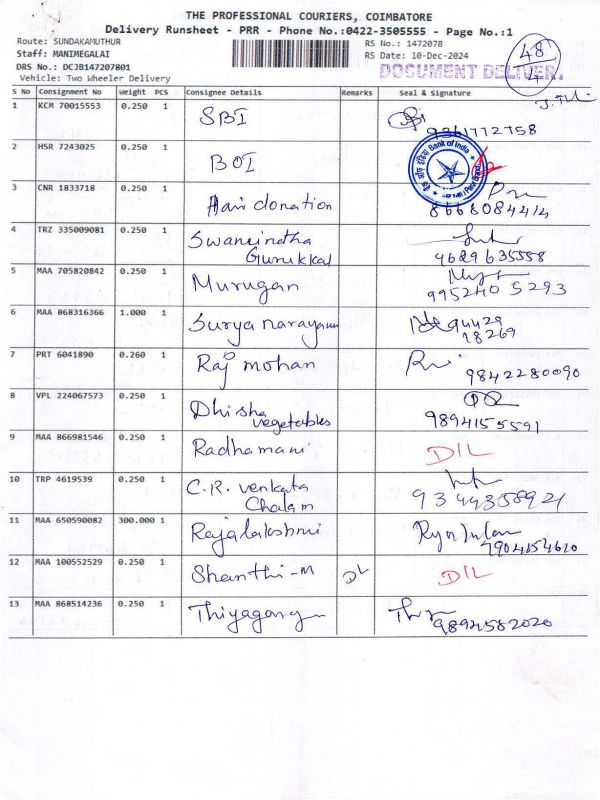 THE PROFESSIONAL COURIERS, COIMBATORE
Delivery Runsheet - PRR - Phone No.:0422-3505555 - Page No.:1
Route: SUNDAKAMUTHUR
Staff: MANIMEGALAI
DRS No.: DCJB147207801
Vehicle: Two Wheeler Delivery
RS No.: 1472078
RS Date: 10-Dec-2024
DOCUMENT DELIVER.
48
S No Consignment No Weight PCS Consignee Details Remarks Seal & Signature
1 KCM 70015553 0.250 1 SBI
2 HSR 7243025 0.250 1 BOI
Bank of India
3 CNR 1833718 0.250 1 Hair donation 8668084414
4 TRZ 335009081 0.250 1 Gurukkal
5 MAA 705820842 0.250 1 Murugan 9952405293
6 MAA 868316366 1.000 1 Surya narayanan
18269
7 PRT 6041890 0.260 1 Raj mohan 9842280090
8 VPL 224067573 0.250 1 Dhisha
vegetables 9894155591
9 MAA 866981546 0.250 1 Radhamani DIL
10 TRP 4619539 0.250 1 C.R. venkata
Chalam 9344358921
11 MAA 650590082 300.000 1 Rajalakshmi
7904154610
12 MAA 100552529 0.250 1 Shanthi-M DL DIL
13 MAA 868514236 0.250 1 9894582020